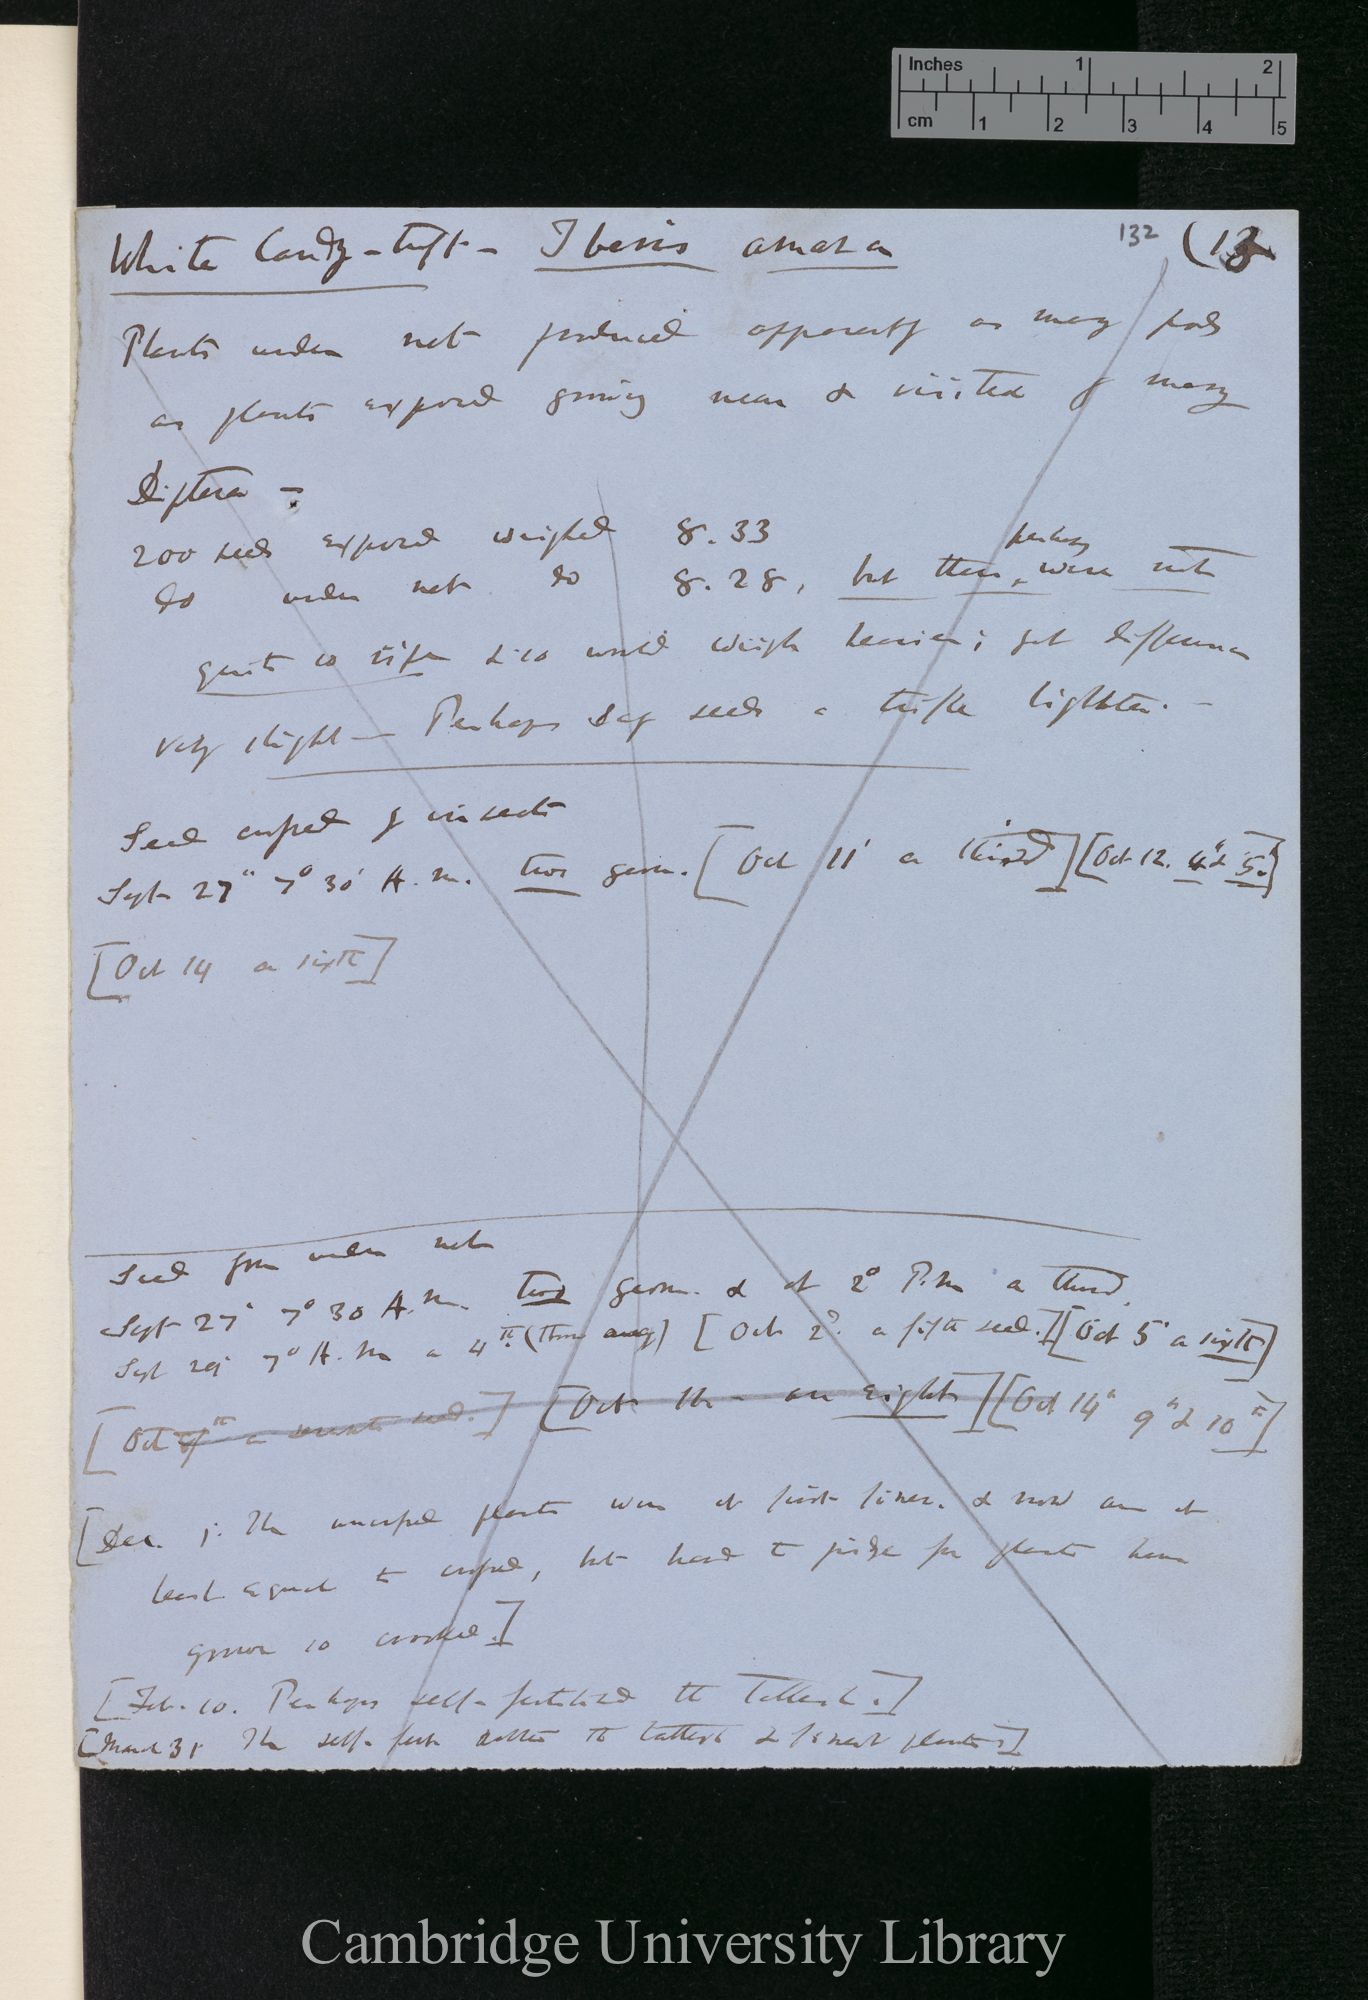 Inches 1 2
cm 1 2 3 4 5
132 (13
White Candy-tuft - Iberis amara
Plants under net produced apparently as many pods
as plants exposed growing near & visited by many
Diptera -
200 seeds exposed weighed 8.33
perhaps
do under net do 8.28, but these were not
quite so ripe & so would weigh heavier; yet difference
very slight — Perhaps say seeds a trifle lighter. -
Seed crossed by insects
Sept 27" 7° 30' A.m. two germ. [Oct 11' a third] [Oct 12. 4" & 5th]
[Oct 14 a sixth]
Seed from under net
Sept 27' 7° 30 A.m. two germ. & at 2° P.m a third.
Sept 29' 7° A.m a 4th. (thrown away) [Oct 2°. a fifth seed.] [Oct 5' a sixth]
[Oct a seventh seed.] [Oct 12 - an eight] [Oct 14" 9" & 10th]
[Dec. 1. The uncrossed plants were at first finer. & now are at
least equal to crossed, but hard to judge for plants have
grown so crooked.]
[Feb. 10. Perhaps self-fertilised the tallest.]
[March 31 The self-fert rather the tallest & finest plants]
Cambridge University Library